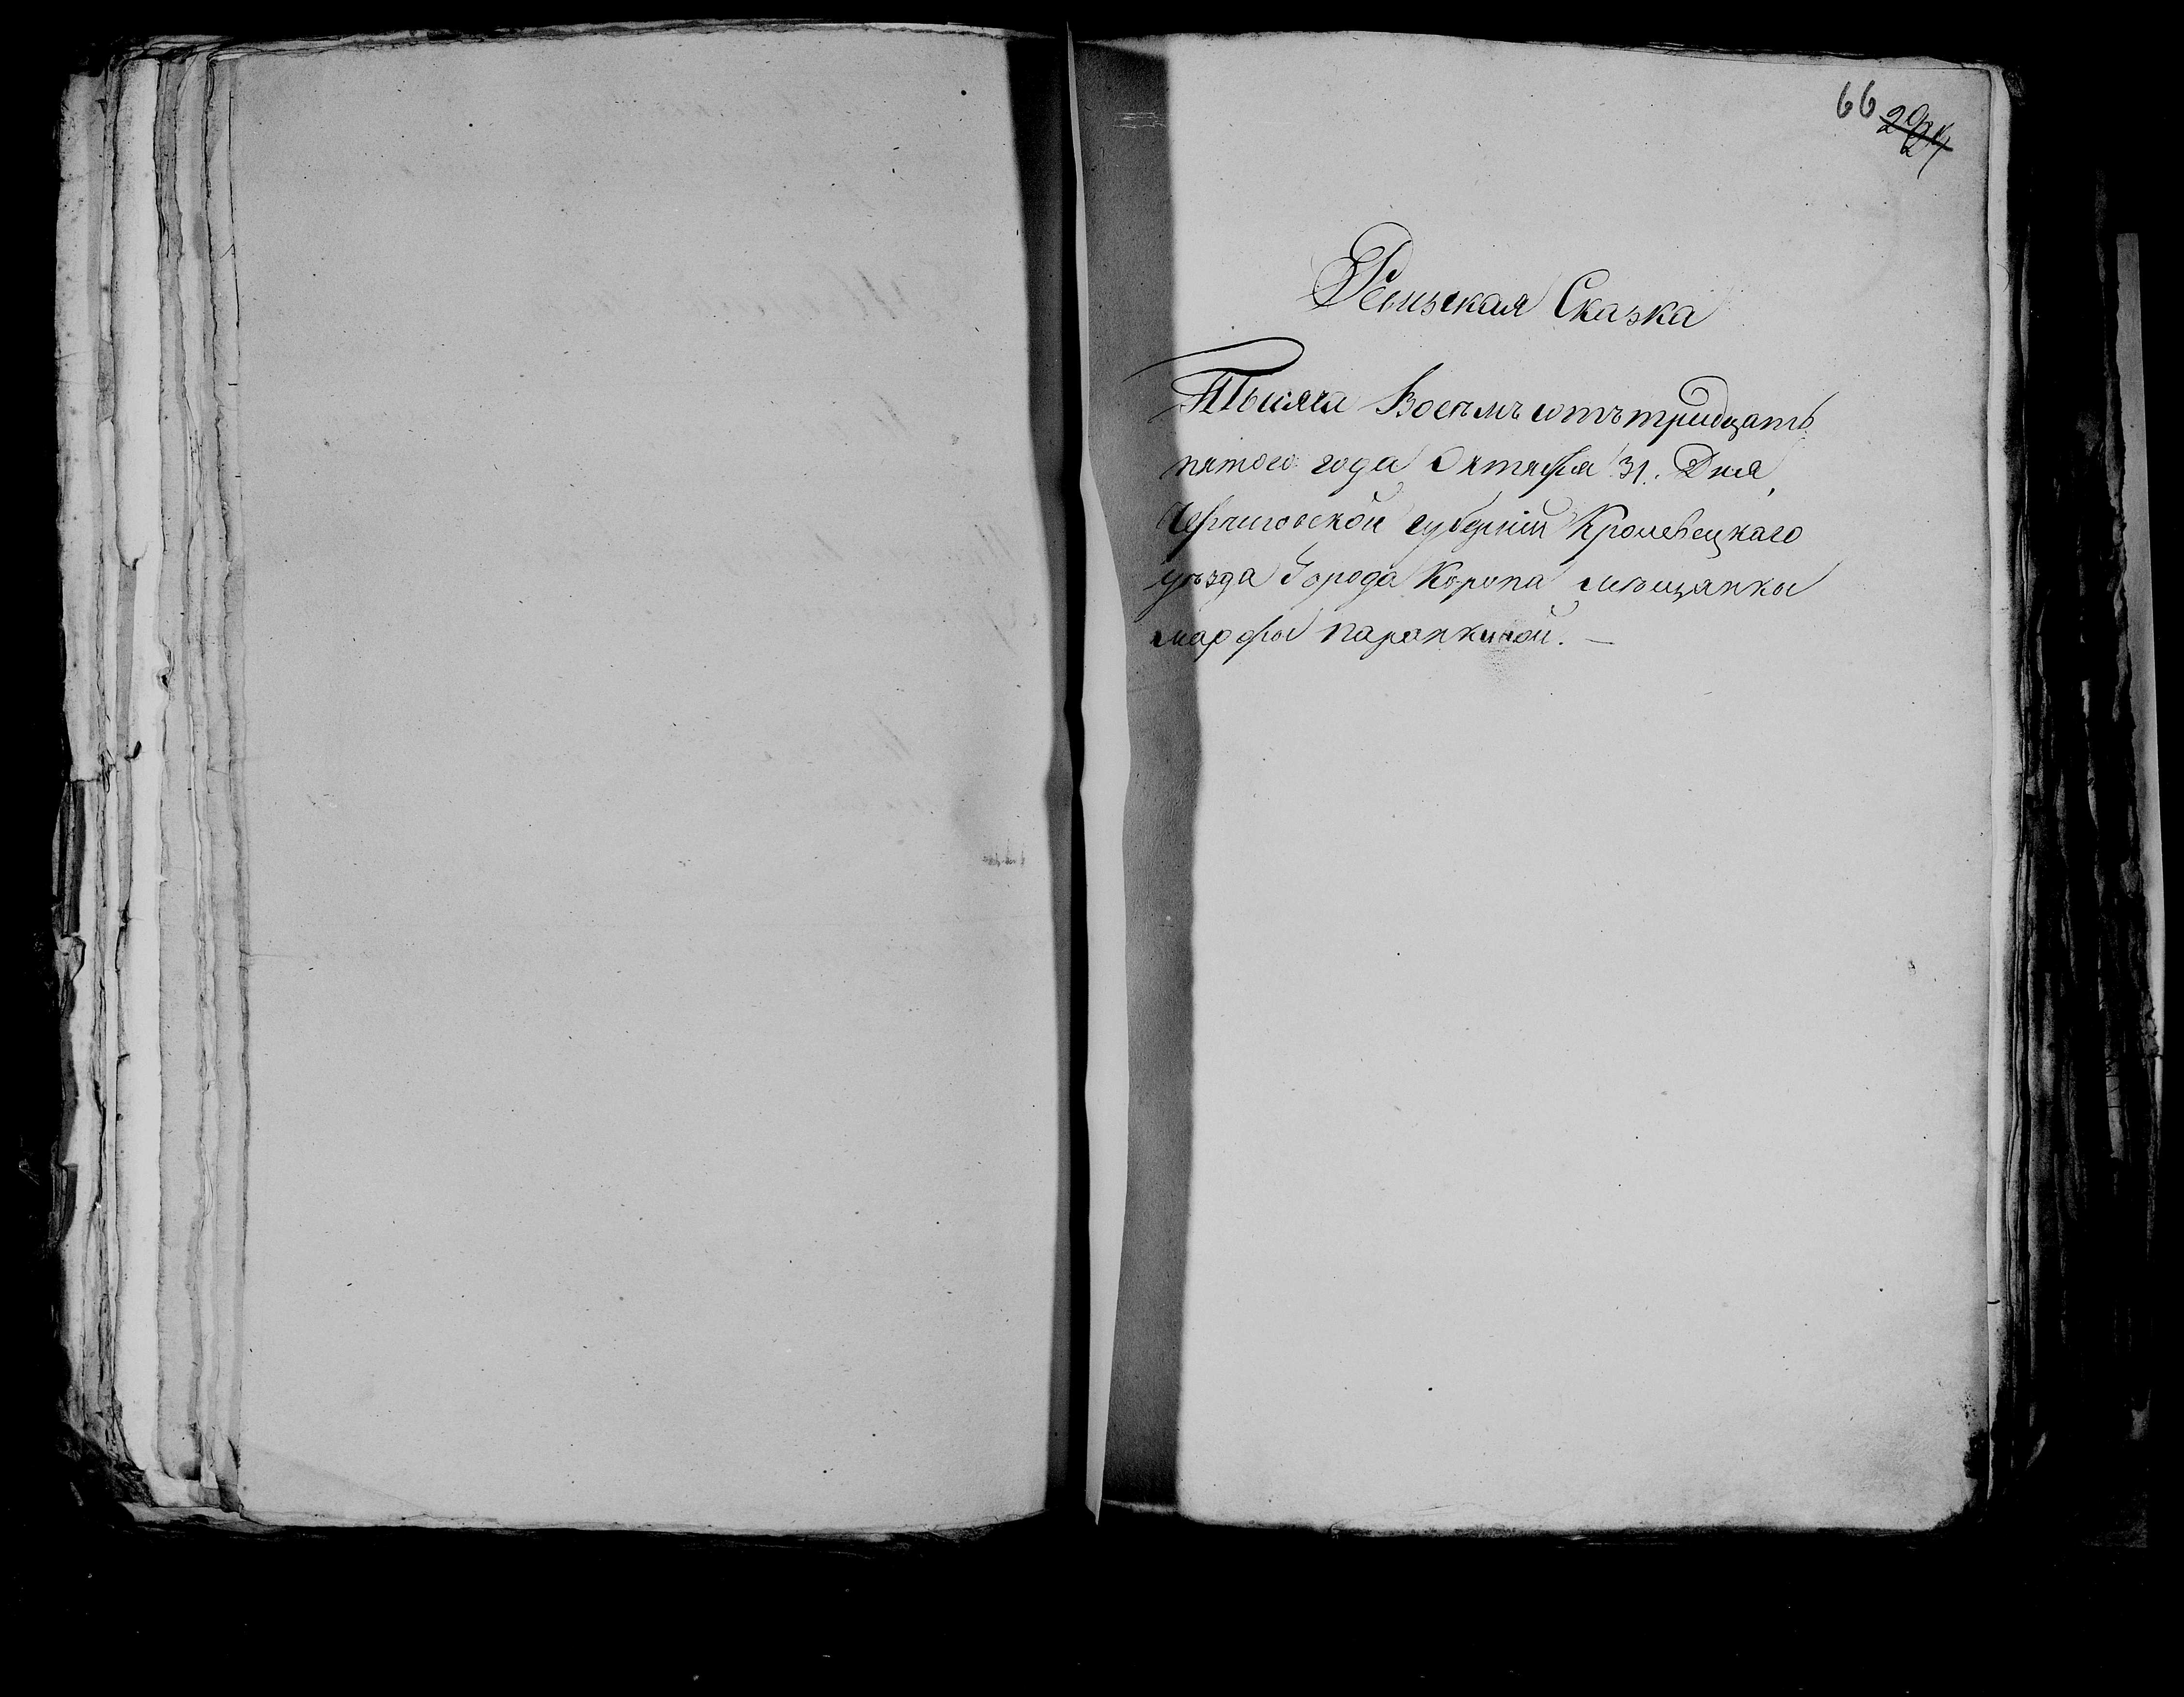 66 224
Ревизская Сказка
Тысяча Восемъ сотъ тридцать
пятого года Октября 31. Дня,
Черниговской губернии Кролевецкаго
уѣзда Города Коропа мѣщанки
марфы паранкиной. —